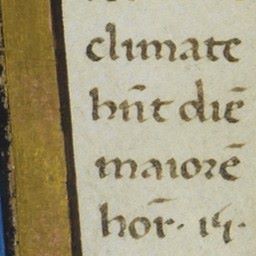 climate
hn̄t diē
maiorē
hor̄· 15·